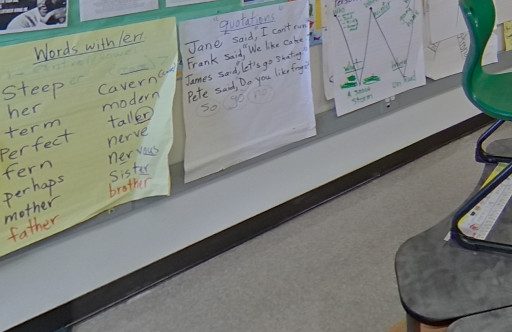 Words with/er/
Steep
her
term
Perfect
fern
perhaps
mother
father
cavern
modern
taller
nerve
nervous
sister
brother
quotations
Jane said, I can't run
Frank said "We like cake
James said, Let's go skating
Pete said, Do you like
So go no